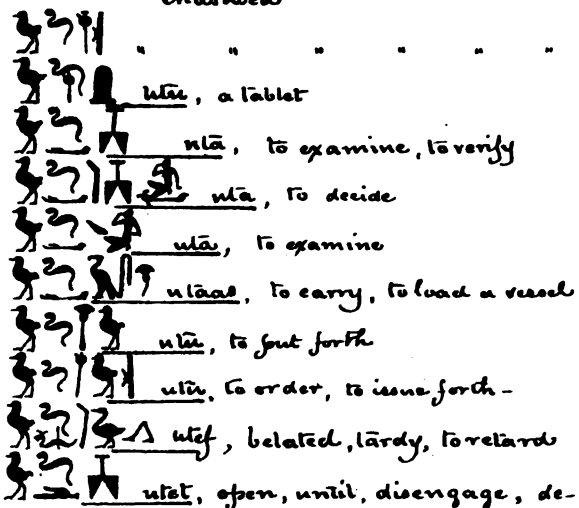 " " " " " "
utu, a tablet
utā, to examine, to verify
uta, to decide
utā, to examine
utāas, to carry, to load a vessel
utū, to put forth
utū, to order, to issue forth -
utef, belated, tardy, to retard
utet, open, until, disengage, de-